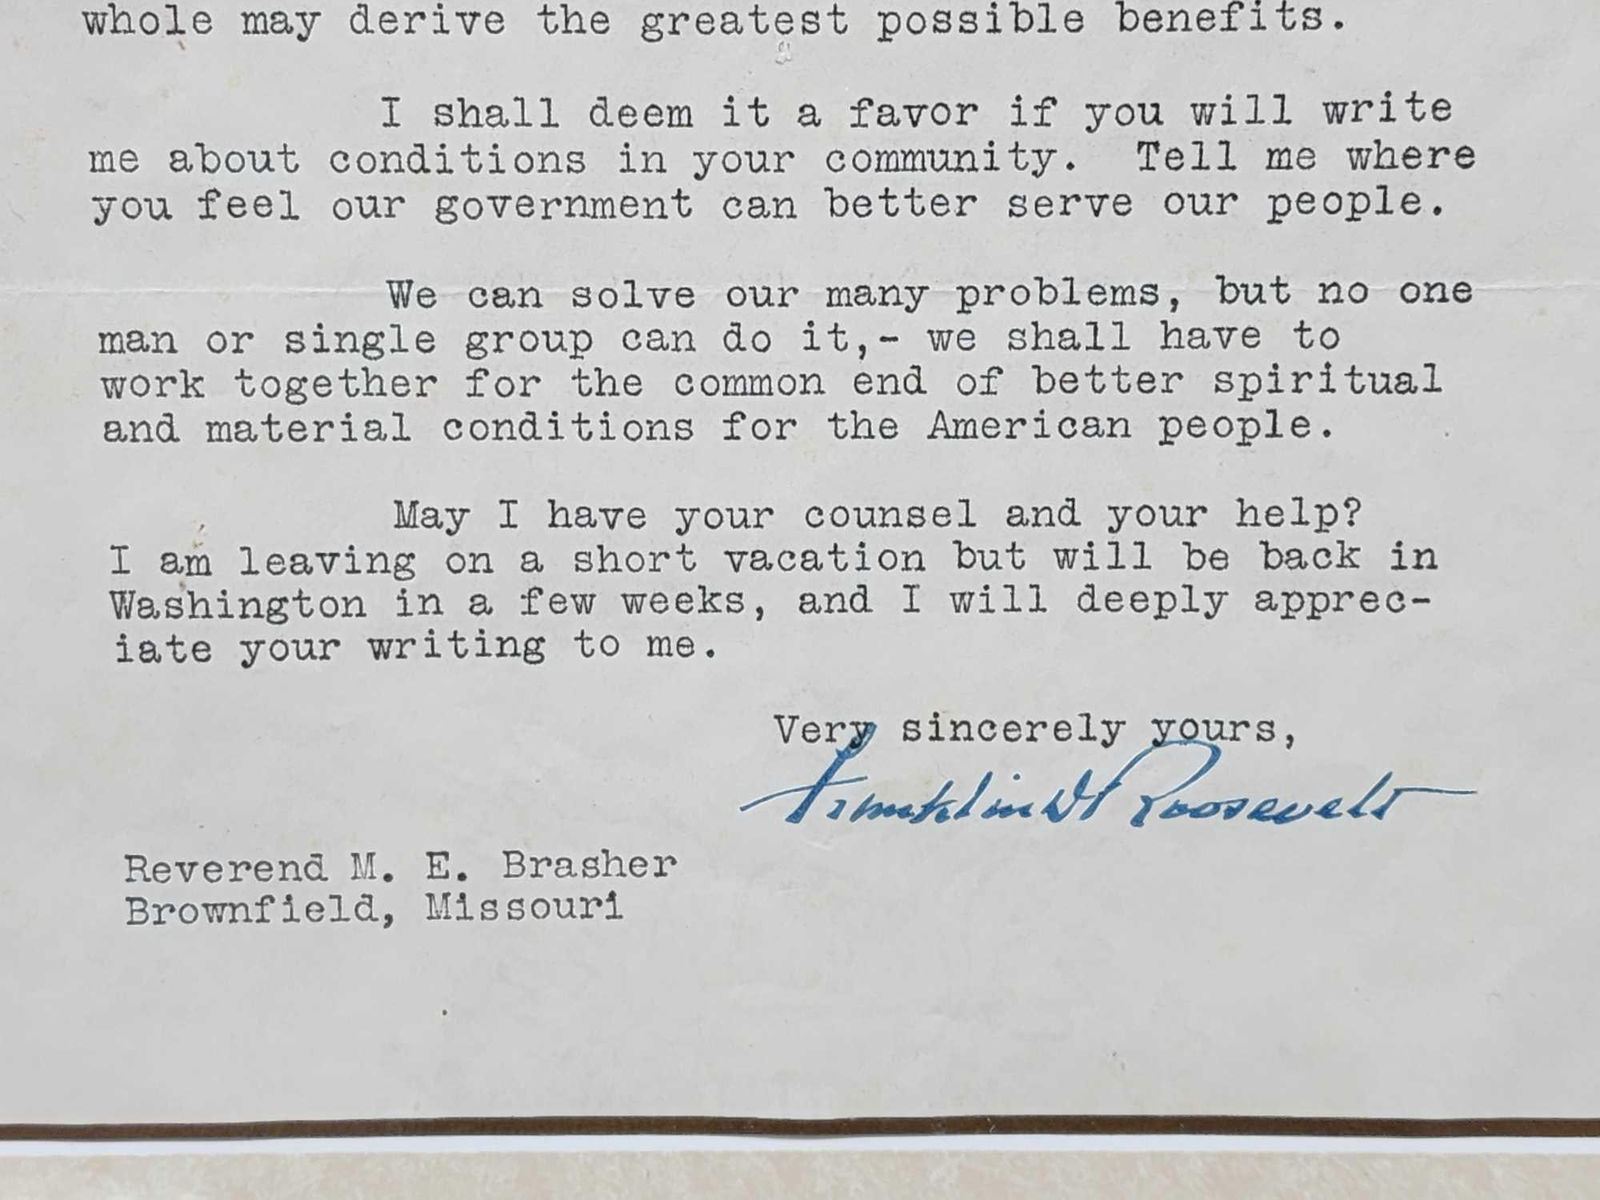 whole may derive the greatest possible benefits.
I shall deem it a favor if you will write
me about conditions in your community. Tell me where
you feel our government can better serve our people.
We can solve our many problems, but no one
man or single group can do it,- we shall have to
work together for the common end of better spiritual
and material conditions for the American people.
May I have your counsel and your help?
I am leaving on a short vacation but will be back in
Washington in a few weeks, and I will deeply apprec-
iate your writing to me.
Very sincerely yours,
Franklin D Roosevelt
Reverend M. E. Brasher
Brownfield, Missouri